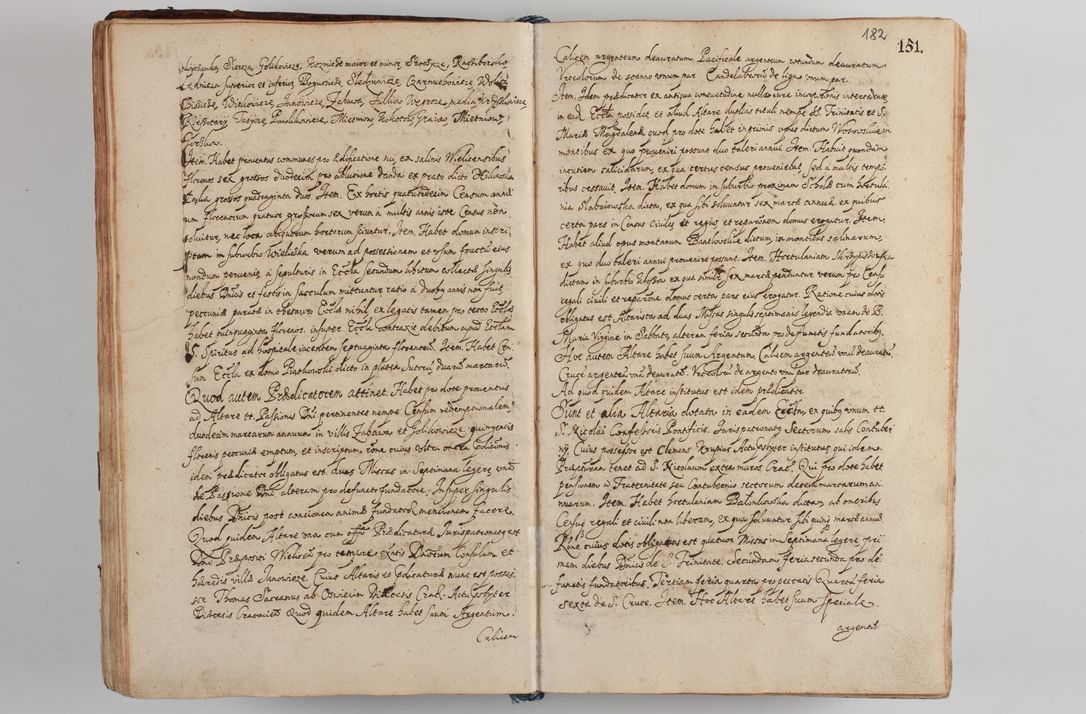 Lyssanka, Siercza, Golikowicze, Kozmicze maior et minor, Chorągwicza, Raciborsko
Lednica superior et inferior, Pogwisdzie, Sledziowicze, Czarnuchowicze, Wola
Biskicze, Wieliowicze, Janowicze, Fabucze,
Biessutary, Tassice, Pawlikowice, Mietniow
Gorskow.
Item. Habet prouentus communes pro ædificatione ex salinis Wielicensibus
florenos sex grossos duodecim pro ablutione danda ex prato dicto
grossos quadraginta duo Item. Ex hortis quatuordecim Censum annu
um florenorum quatuor grossorum sex verum a multis annis iste Census non
soluitur, nec loca aliquorum hortorum sciuntur. Item. Habet domum inscri
ptam in suburbio Wieliczka verum ad possessionem et vsum fructum eius
nondum peruenit, à sepulturis in Eccla secundum libitum collectæ singulis
diebus Dnicis et festis in sacculum mittuntur ratio à duobus annis non fuit,
pecunia parata in thesauro Eccles nihil ex legatis tamen pro tecto Eccles
habet quinquaginta florenos. insuper Eccla contraxit debitum apud Ecclam
S. Spiritus ad hospitale iacentem septuaginta florenorum. Item. Habet Cen
sum Eccla ex domo Piątkowski dicto in platea Sutorum duarum marcarum.
Quod autem Prædicatorem attinet. Habet pro dote prouentus
ad Altare tt. Passionis Dni pertinentes nempe Censum redemptionalem
duodecim marcarum annuum in villis Fabawa et Golikowicze quingentis
florenis pecuniæ emptum, et inscriptum, rone cuius
idem prædicator obligatus est duas Missas in Septimana legere vnam
de Passione Dni, alteram pro defuncto fundatore. Insuper singulis
diebus Dnicis post concionem animæ fundatoris mentionem facere.
Quod quidem Altare vna cum offo Prædicaturæ Jurispatronatus est
Dni Præpositi Weliscen pro tempore extis Dnorum Consulum et
hæredis villæ Janowicze. Cuius Altaris et Prædicaturæ nunc est posses
sor Thomas Sacranus ab Oswiecim Diœcesis Crac. Actu præsbyter
Diœcesis Cracouien Quod quidem Altare habet suum Argentum.
Calicem
182
151.
Calicem argenteum deauratum Pacificale argenteum rotundum deauratum
Vrceolorum de stanno vnum par Candelabrorum de ligno vnum par.
Item. Idem prædicator ex antiqua consuetudine nullo iure incorporationis intercedente
in ead. Eccla possidet et aliud Altare duplicis tituli nempe SS. Trinitatis et S.
Mariæ Magdalenæ quod pro dote habet inprimis opus dictum in
montibus ex quo prouenire possunt duo taleri annui Item. Habuit quondam
incutiam salividarum, ex qua certus census proueniebat, sed a multis tempo
ribus cessauit, Item. Habet domum in suburbio proximam Scholæ cum hortula
nia Slabaiowska dicta, ex qua sibi soluuntur sex marcæ annuæ ex quibus
certa pars in Census Ciuiles et regios et reparationem domus erogatur. Item.
Habet aliud opus montanum Bantkowskie dictum in montibus salinarum,
ex quo duo taleri annui prouenire possunt. Item. Hortulaniam
dictam in suburbio ex qua similiter sex marcæ penduntur verum pro Censu
regali ciuili et reparatione domus certa pars eius erogatur. Ratione cuius dotis
obligatus est Altarista ad duas Missas singulis septimanis legendis vnam de B.
Maria Virgine in Sabbato, alteram feria secunda pro defunctis fundatoribus.
Hoc autem Altare habet suum Argentum, Calicem argenteum vnum deauratum,
Crucem argenteam vnam deauratam. Vrceolorum de argento vnum par deauratorum.
Ad quod quidem Altare institutus est idem prædicator.
Sunt et alia Altaria dotata in eadem Eccla, ex quibus vnum tt.
S. Nicolai Confessoris Pontificis. Jurispatronatus Sectorum salis Contuber
nij. Cuius possessor est Clemens Krupius Actu præsbyter institutus qui idem
Præpositum tenet ad S. Nicolaum extra muros Crac. Qui pro dote habet
pensionem à Fraternitate seu Contubernio sectorum decem marcarum an
nuarum. Item. Habet hortulaniam Balonkowska dictam ab oneribus
Census regali et ciuili non liberam, ex qua soluuntur sibi quinque marcæ annuæ.
Rone cuius dotis obligatus est quatuor Missas in Septimana legere pri
mam diebus Dnicis de S. Trinitate. Secundam feria secunda pro de
functis fundatoribus. Tertiam feria quarta pro peccatis Quartam feria
sexta de S. Cruce. Item. Hoc Altare habet suum speciale
argentum